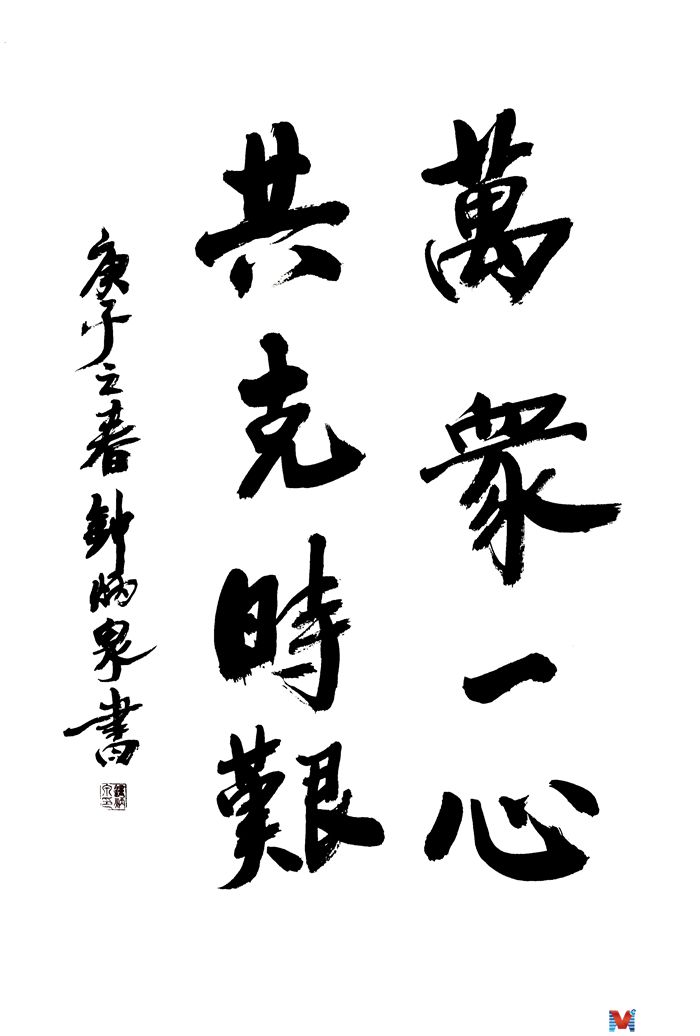 萬眾一心
共克時艱
庚子立春鍾炳泉書